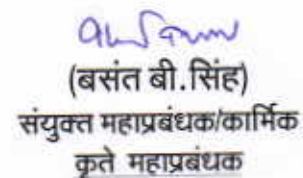 (बसंत बी.सिंह)
संयुक्त महाप्रबंधक/कार्मिक
कृते महाप्रबंधक